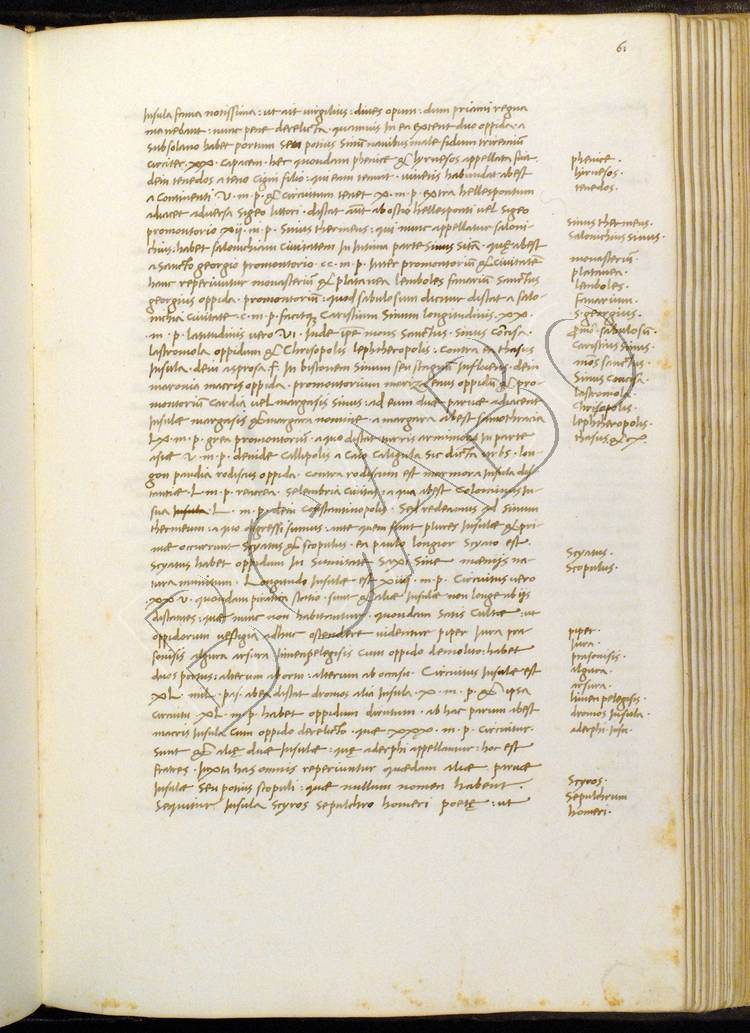 61
Insula fama notissima : ut ait virgilius : dives opum : dum priami regna
manebant : nunc pene derelicta . quamvis in ea extent duo oppida . a
subsolano habet portum seu potius sinum navibus male fidum triremium
circiter . xx . capacem . hec quondam phenice & lyrnesos appellata fuit .
dein tenedos a teno cigni filio . qui eam tenuit . vineis habundat . abest
a continenti . v . m . p . & circuitum tenet . x . m . p . extra hellespontum
adiacet adversa sigeo littori . distat aut ab ostio hellesponti vel sigeo
promontorio xij . m . p . Sinus thermeus : qui nunc appellatur saloni-
chius . habet salonichiam civitatem in intima parte sinus sitam . que abest
a sancto georgio promontorio . cc . m . p . inter promontorium & civitate
hanc reperiuntur monasterium & platanea lemboles fimarium sanctus
georgius oppida . promontorium : quod sabulosum dicitur distat a salo-
nichia civitate . c . m . p . Caristium sinum longitudinis . xx .
m . p . latitudinis vero vi . inde ipse mons sanctus . sinus contesa .
lastromola oppidum & Chrisopolis lephtheropolis . contra ea thasus
insula . dein asprosa . f . in bistonem sinum seu stagnum influens . dein
maronia macris oppida . promontorium enus oppidum & pro-
montorium cardia vel margasis sinus : ad eum due parvae adiacent
insulae margasis & margara nomine . a margara abest samothracia
LX . m . p . grea promontorium . a quo distat turris in parte
asiae v . m . p . deinde callipolis a Caio Caligula sic dicta urbs . lon-
gon panidia rodiscus oppida . contra rodiscum est marmora insula dis-
tantiae . l . m . p . selembria civitas . a qua abest
. L . m . p . dein constantinopolis . Sed redeamus ad sinum
thermeum : a quo digressi sumus : ante quem sunt plures insulae & pri-
mae occurrunt scyatus & scopulus . ea paulo longior scyato est .
Scyatus habet oppidum in summitate saxi sine maeniis na-
tura munitum . Longitudo insulae est xiiij . m . p . Circuitus vero
xxv . quondam piratica statio . sunt & aliae insulae non longe ab ijs
distantes : quae nunc non habitantur . quondam satis cultae : ut
oppidorum vestigia adhuc ostendere videntur piper Iura pra
sonisis algura arsura limenpelegisis cum oppido demolito : habet
duos portus : alterum a alterum ab occasu . Circuitus insulae est
XL . mil . pas . ab ea distat dromos alia insula . x . m . p . & ipsa
circuitu . XL . m . p . habet oppidum dirutum . ab hac parum abest
macris insula cum oppido derelicto . quae xxx . m . p . circuitur .
Sunt & aliae duae insulae : quae aderphi appellantur : hoc est
fratres . Iuxta has omnis reperiuntur quaedam aliae parvae
insulae seu potius scopuli : quae nullum nomen habent .
Sequitur insula scyros sepulchro homeri poetae : ut
phenice .
lyrnesos .
tenedos .
sinus thermeus .
Salonichius sinus .
monasterium .
platanea .
lemboles .
fimarium .
s . georgius .
prom . sabulosum .
Caristius sinus .
mons sanctus .
Sinus contesa .
lastromola .
Chrisopolis .
lephtheropolis .
thasus .
Scyatus .
Scopulus .
piper .
Iura .
prasonisis .
algura .
arsura .
limen pelegisis .
dromos insula .
aderphi .
Scyros .
Sepulchrum
homeri .